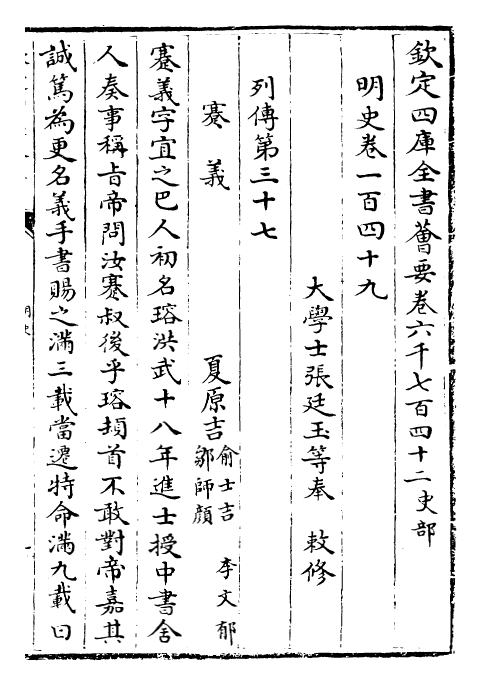 欽定四庫全書薈要卷六千七百四十二史部
明史卷一百四十九
大學士張廷玉等奉　敕修
列傳第三十七
蹇義　夏原吉　俞士吉　李文郁
鄒師顔
蹇義字宜之巴人初名瑢洪武十八年進士授中書舍
人奏事稱㫖帝問汝蹇叔後乎瑢頓首不敢對帝嘉其
誠篤為更名義手書賜之滿三載當遷特命滿九載曰
明史